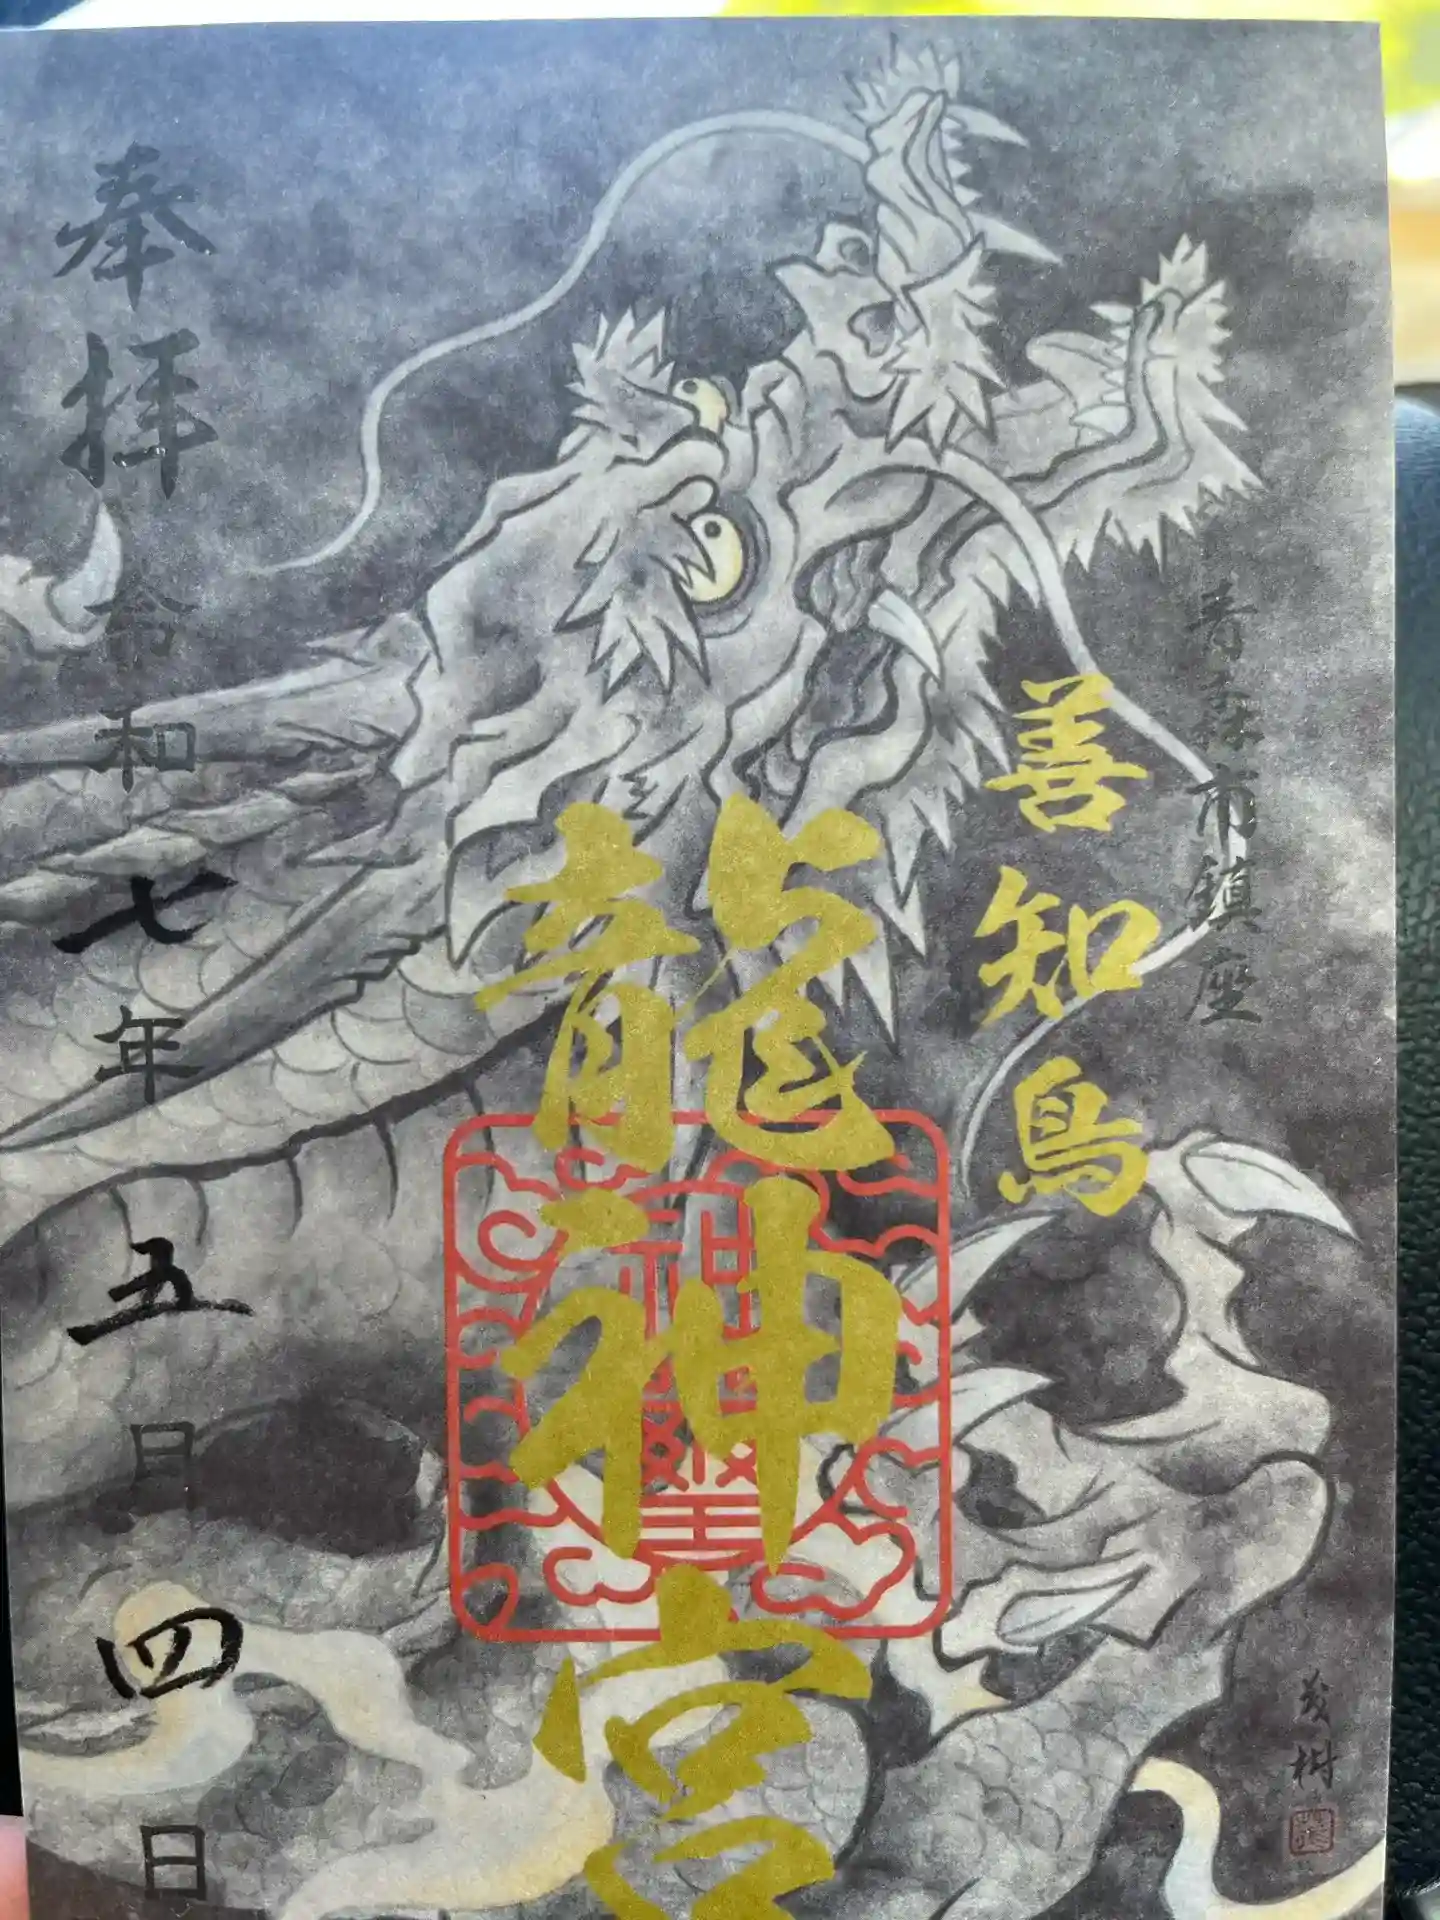 青森市鎮座
善知鳥
龍神宮
奉拝
令和七年五月四日
茂樹